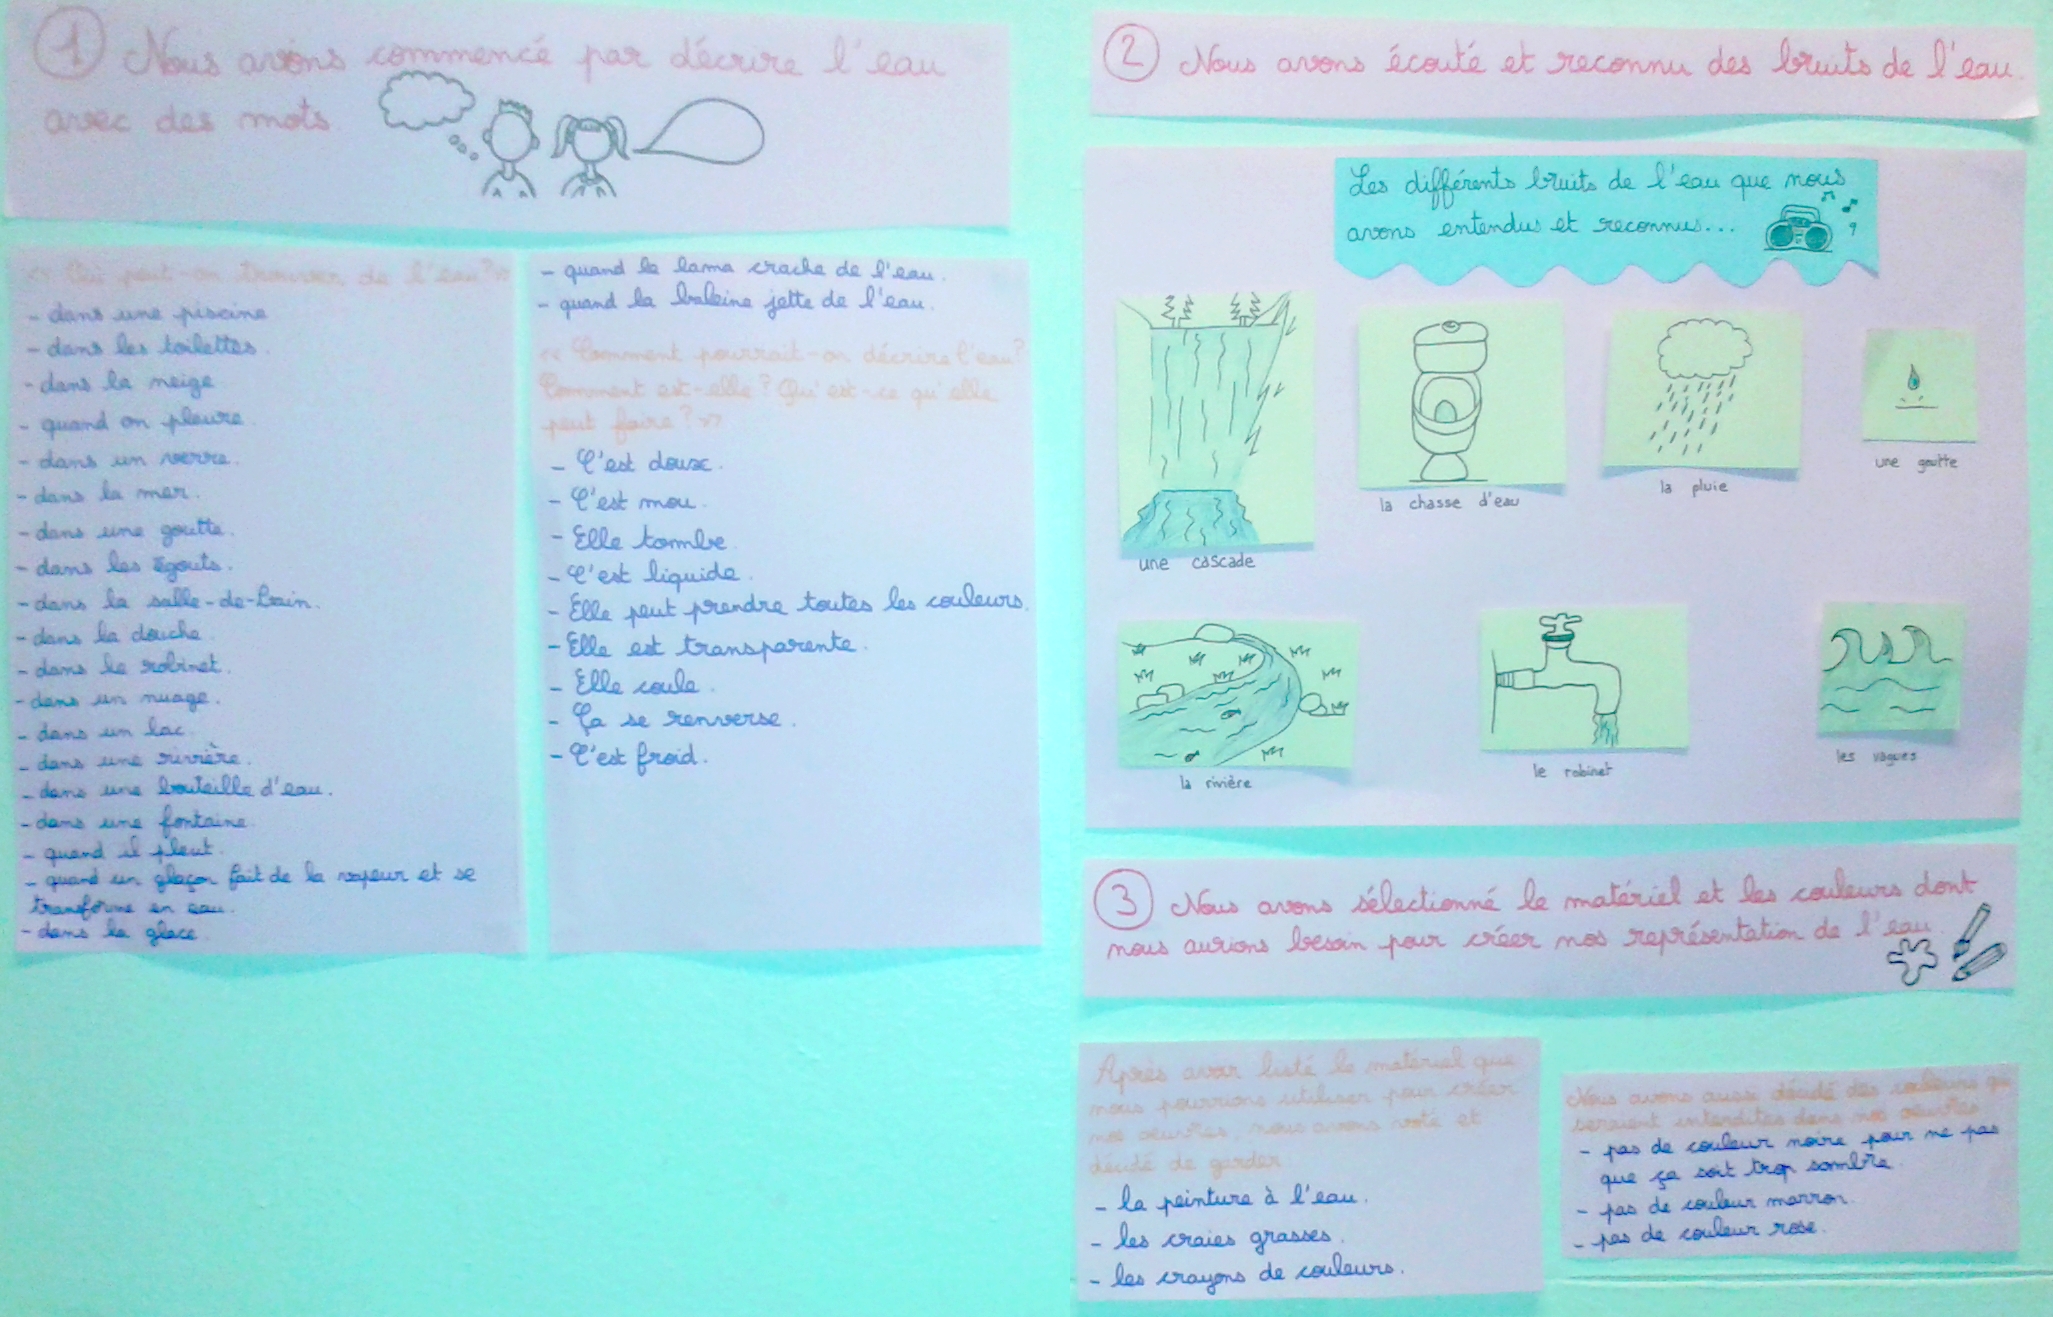 1 Nous avons commencé par décrire l'eau
avec des mots
« Où peut-on trouver de l'eau? »
- dans une piscine
- dans les toilettes.
- dans la neige
- quand on pleure.
- dans un verre.
- dans la mer.
- dans une goutte.
- dans les égouts.
- dans la salle-de-bain.
- dans la douche.
- dans le robinet.
- dans un nuage.
- dans un lac.
- dans une rivière.
- dans une bouteille d'eau.
- dans une fontaine.
- quand il pleut.
- quand un glaçon fait de la vapeur et se
transforme en eau.
- dans la glace.
- quand le lama crache de l'eau.
- quand la baleine jette de l'eau.
« Comment pourrait-on décrire l'eau?
Comment est-elle? Qu'est-ce qu'elle
peut faire? »
- C'est doux.
- C'est mou.
- Elle tombe
- C'est liquide.
- Elle peut prendre toutes les couleurs.
- Elle est transparente.
- Elle coule.
- Ça se renverse.
- C'est froid.
2 Nous avons écouté et reconnu des bruits de l'eau.
Les différents bruits de l'eau que nous
avons entendus et reconnus...
une cascade
la chasse d'eau
la pluie
une goutte
la rivière
le robinet
les vagues
3 Nous avons sélectionné le matériel et les couleurs dont
nous aurions besoin pour créer nos représentation de l'eau.
Après avoir listé le matériel que
nous pourrions utiliser pour créer
nos œuvres, nous avons voté et
décidé de garder
- la peinture à l'eau.
- les craies grasses.
- les crayons de couleurs.
Nous avons aussi décidé des couleurs qui
seraient interdites dans nos œuvres
- pas de couleur noire pour ne pas
que ça soit trop sombre.
- pas de couleur marron.
- pas de couleur rose.